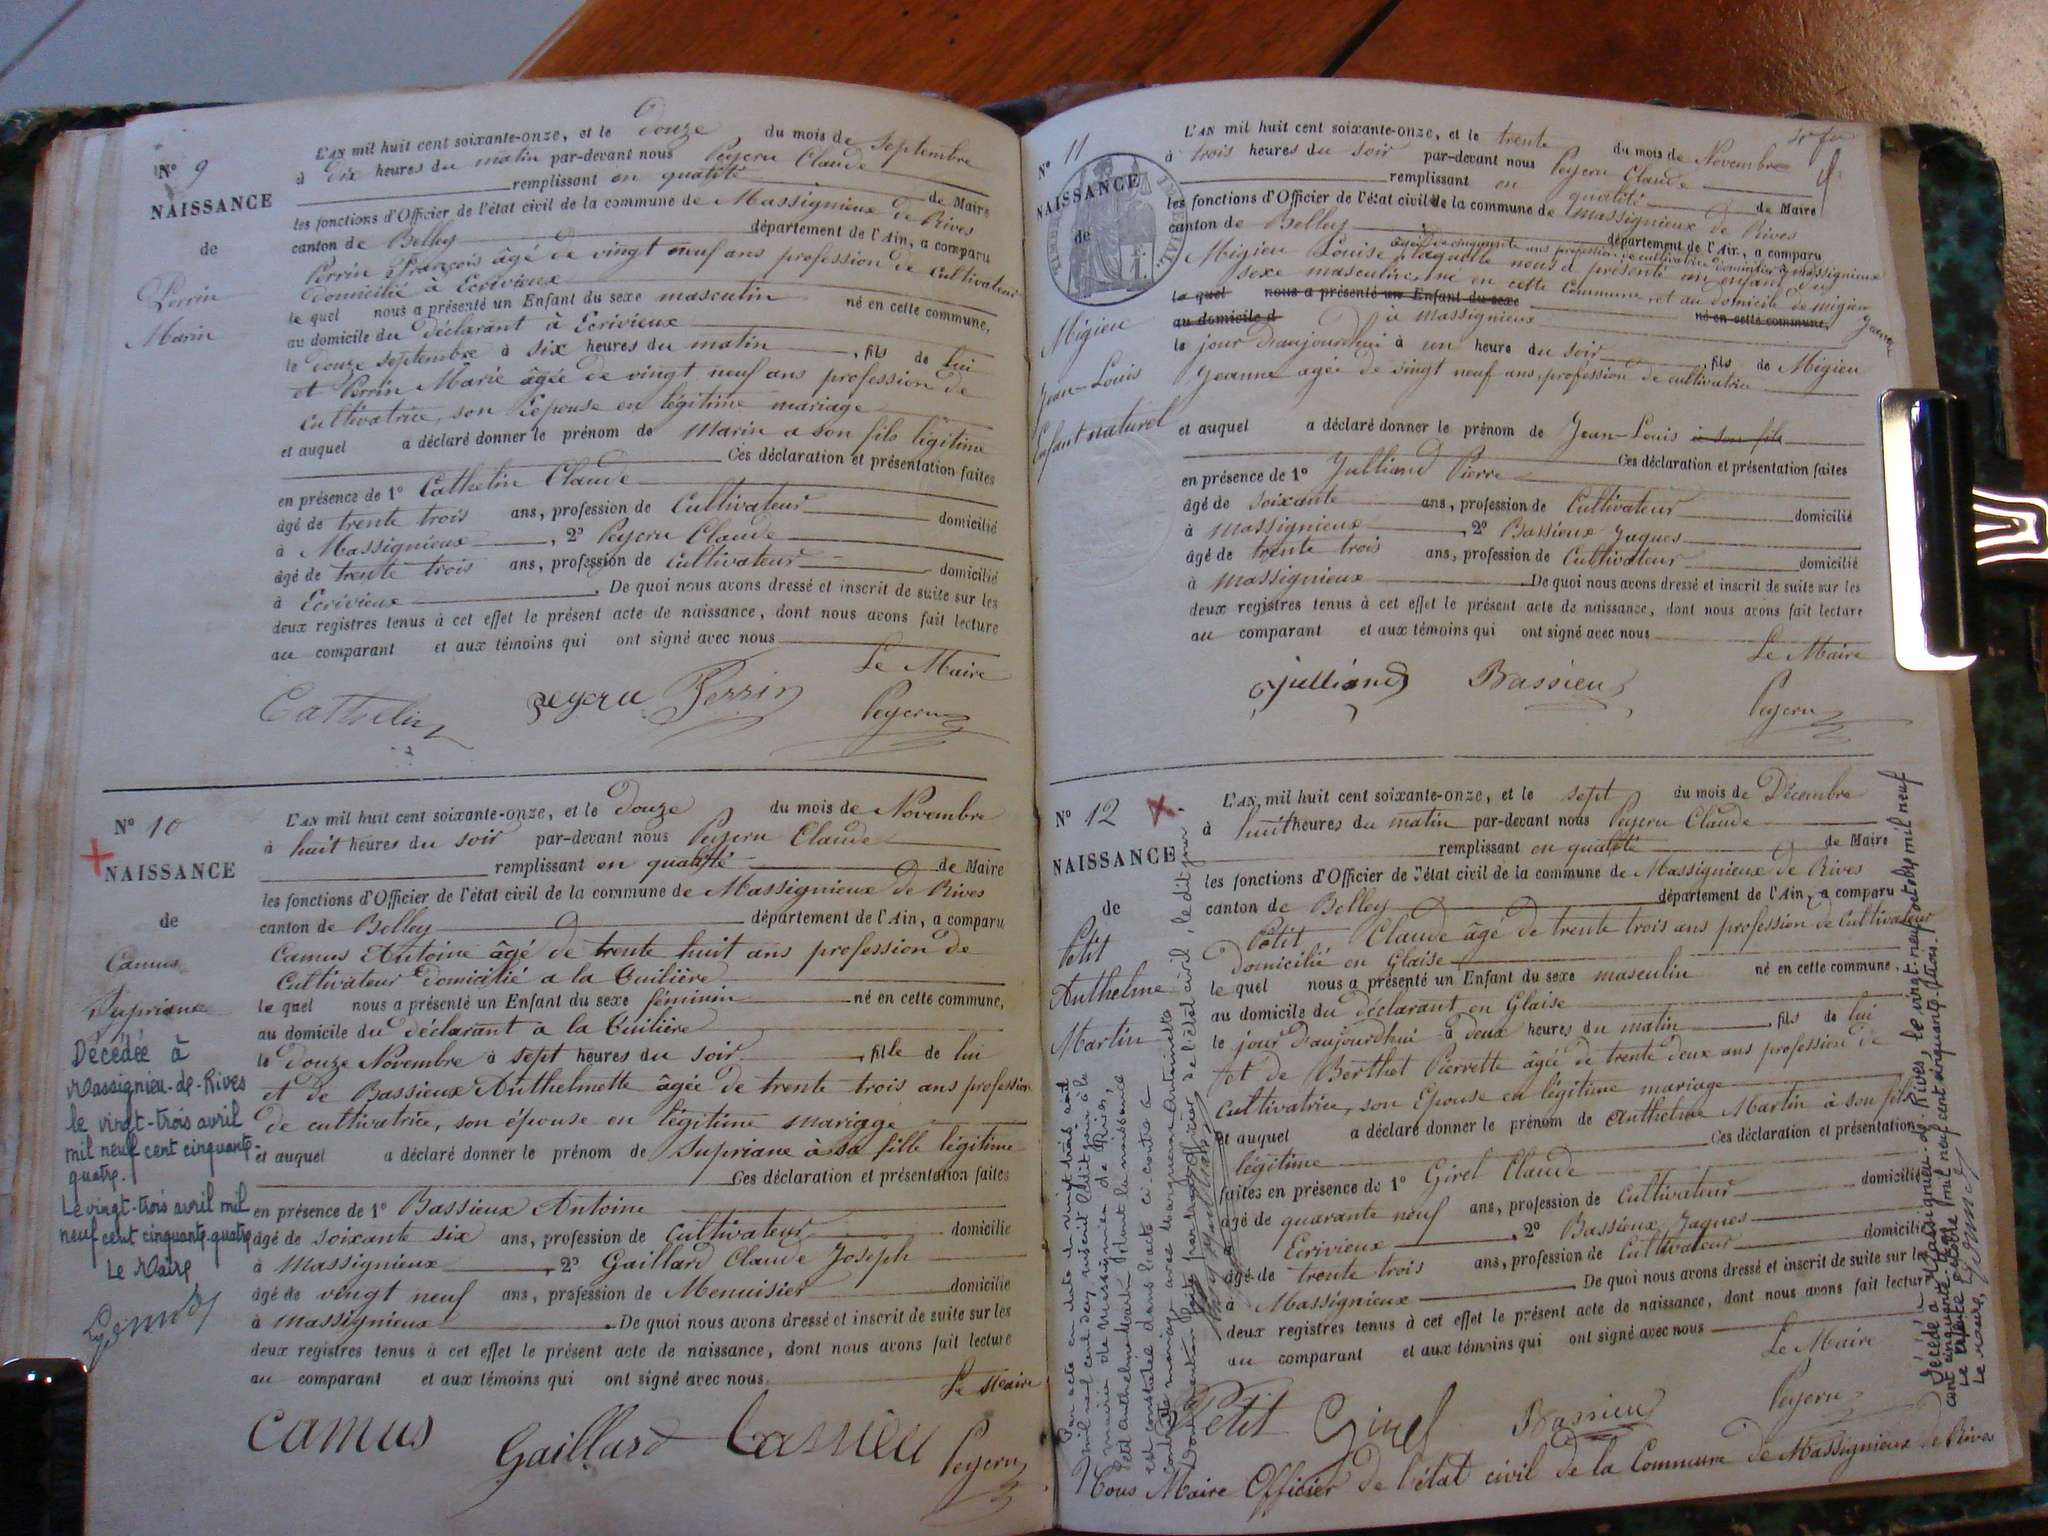 N° 9
NAISSANCE
de
Perrin
Marin
L'AN mil huit cent soixante-onze, et le douze du mois de Septembre
à dix heures du matin par-devant nous Peyeru Claude
remplissant en qualité de Maire
les fonctions d'Officier de l'état civil de la commune de Massignieux de Rives
canton de Belley département de l'Ain, a comparu
Perrin François âgé de vingt neuf ans profession de cultivateur
domicilié à Ecrivieux
le quel nous a présenté un Enfant du sexe masculin né en cette commune,
au domicile du déclarant à Ecrivieux
le douze Septembre à six heures du matin, fils de lui
et Perrin Marie âgée de vingt neuf ans profession de
Cultivatrice, son Epouse en légitime mariage
et auquel a déclaré donner le prénom de Marin a son fils légitime
Ces déclaration et présentation faites
en présence de 1° Cathelin Claude
âgé de trente trois ans, profession de Cultivateur domicilié
à Massignieux, 2° Peyeru Claude
âgé de trente trois ans, profession de Cultivateur domicilié
à Ecrivieux. De quoi nous avons dressé et inscrit de suite sur les
deux registres tenus à cet effet le présent acte de naissance, dont nous avons fait lecture
au comparant et aux témoins qui ont signé avec nous
Le Maire
Cathelin peyeru Perrin Peyeru
N° 10
NAISSANCE
de
Camus
Supriane
Décédée à
Massignieu-de-Rives
le vingt-trois avril
mil neuf cent cinquante-
quatre.
Le vingt-trois avril mil
neuf cent cinquante-quatre
Le Maire,
L'AN mil huit cent soixante-onze, et le douze du mois de Novembre
à huit heures du soir par-devant nous Peyeru Claude
remplissant en qualité de Maire
les fonctions d'Officier de l'état civil de la commune de Massignieux de Rives
canton de Belley département de l'Ain, a comparu
Camus Antoine âgé de trente huit ans profession de
Cultivateur domicilié a la Tuilière
le quel nous a présenté un Enfant du sexe féminin né en cette commune,
au domicile du déclarant a la Tuilière
le douze Novembre à sept heures du soir, fille de lui
et de Bassieux Anthelmette âgée de trente trois ans profession
de cultivatrice, son épouse en légitime mariage
et auquel a déclaré donner le prénom de Supriane à sa fille légitime
Ces déclaration et présentation faites
en présence de 1° Bassieux Antoine
âgé de soixante six ans, profession de Cultivateur domicilié
à Massignieux, 2° Gaillard Claude Joseph
âgé de vingt neuf ans, profession de Menuisier domicilié
à Massignieux. De quoi nous avons dressé et inscrit de suite sur les
deux registres tenus à cet effet le présent acte de naissance, dont nous avons fait lecture
au comparant et aux témoins qui ont signé avec nous.
Le Maire
Camus Gaillard Bassieu Peyeru
N° 11
NAISSANCE
de
Migieu
Jean-Louis
Enfant naturel
L'AN mil huit cent soixante-onze, et le trente du mois de Novembre
à trois heures du soir par-devant nous Peyeru Claude
remplissant en qualité de Maire
les fonctions d'Officier de l'état civil de la commune de Massignieux de Rives
canton de Belley département de l'Ain, a comparu
âgée de cinquante ans profession de cultivatrice domiciliée à Massignieux
Migieu Louise laquelle nous a présenté un enfant du
sexe masculin, né en cette Commune, et au domicile de Migieu
le quel nous a présenté un Enfant du sexe
Jeanne
au domicile d à Massignieux né en cette commune,
le jour d'aujourd'hui à un heure du soir, fils de Migieu
Jeanne agée de vingt neuf ans, profession de cultivatrice
et auquel a déclaré donner le prénom de Jean-Louis à son fils
Ces déclaration et présentation faites
en présence de 1° Julliand Pierre
âgé de soixante ans, profession de Cultivateur domicilié
à Massignieux, 2° Bassieux Jaques
âgé de trente trois ans, profession de Cultivateur domicilié
à Massignieux. De quoi nous avons dressé et inscrit de suite sur les
deux registres tenus à cet effet le présent acte de naissance, dont nous avons fait lecture
au comparant et aux témoins qui ont signé avec nous
Le Maire
Julliand Bassieu Peyeru
N° 12
NAISSANCE
de
Petit
Anthelme
Martin
L'AN mil huit cent soixante-onze, et le sept du mois de Décembre
à huit heures du matin par-devant nous Peyeru Claude
remplissant en qualité de Maire
les fonctions d'Officier de l'état civil de la commune de Massignieux de Rives
canton de Belley département de l'Ain, a comparu
Petit Claude âgé de trente trois ans profession de Cultivateur
domicilié en Glaise
le quel nous a présenté un Enfant du sexe masculin né en cette commune,
au domicile du déclarant en Glaise
le jour d'aujourd'hui à deux heures du matin, fils de lui
et de Berthet Pierrette âgée de trente deux ans profession de
Cultivatrice, son Epouse en légitime mariage
et auquel a déclaré donner le prénom de Anthelme Martin à son fils
légitime Ces déclaration et présentation
faites en présence de 1° Girel Claude
âgé de quarante neuf ans, profession de Cultivateur domicilié
à Ecrivieux, 2° Bassieux Jaques
âgé de trente trois ans, profession de Cultivateur domicilié
à Massignieux. De quoi nous avons dressé et inscrit de suite sur les
deux registres tenus à cet effet le présent acte de naissance, dont nous avons fait lecture
au comparant et aux témoins qui ont signé avec nous
Le Maire
Petit Girel Bassieu Peyeru
Nous Maire Officier de l'état civil de la Commune de Massignieux de Rives
Par acte en date du vingt trois août
mil neuf cent
mairie de Massignieu de Rives,
Petit Anthelme Martin dont la naissance
est constatée dans l'acte ci-contre a
contracté mariage avec
de l'état civil, le dit jour.
Décédé à Massignieu-de-Rives, le vingt-neuf octobre mil neuf
cent cinquante-
Le trente octobre mil neuf cent cinquante-
Le Maire,